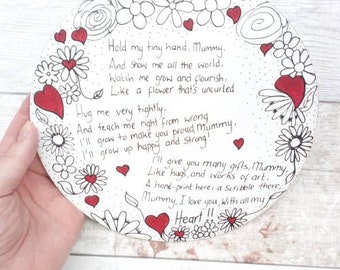 Hold my tiny hand, Mummy,
And show me all the world,
Watch me grow and flourish,
Like a flower that's uncurled
Hug me very tightly,
And teach me right from wrong
I'll grow to make you proud, Mummy,
I'll grow up happy and strong!
I'll give you many gifts, Mummy
Like hugs, and works of art.
A hand-print here, a scribble there,
Mummy, I love you, with all my
Heart!!